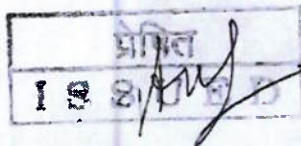 प्रेषित
ISSUED